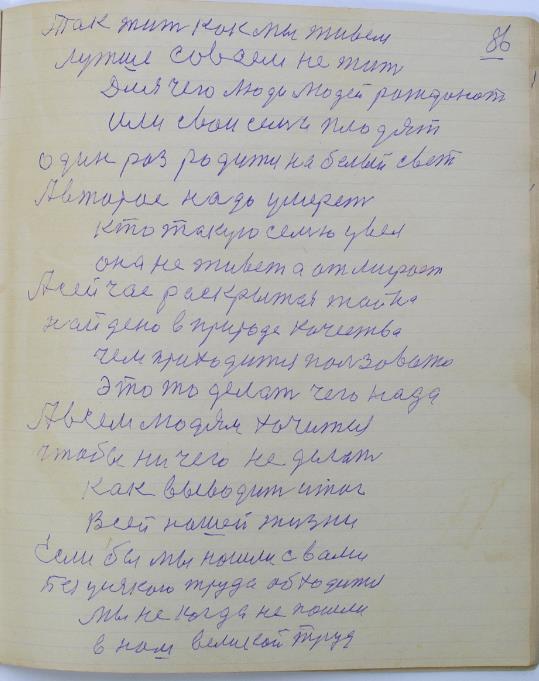 86
Так жит как мы живем
лутше совсем не жит
Для чего люди людей рождают
или свои семи плодят
один раз родити на белый свет
Авторое надо умерет
Кто такую семю увел
она не живет а отмирает
А сейчас раскрытая тайна
найдено в природе качества
чем приходится ползоватс
Это то делат чего нада
А всем людям хочится
чтобы ни чего не делат
Как выводит итог
Всей нашей жизни
Если бы мы пошли с вами
Без усякого труда обходится
Мы не когда не пошли
в нам великой труд